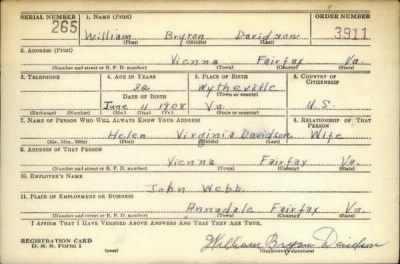 SERIAL NUMBER 1. NAME (Print) ORDER NUMBER
265 William Bryron Davidson 3911
(First) (Middle) (Last)
2. ADDRESS (Print)
Vienna Fairfax Va.
(Number and street or R. F. D. number) (Town) (County) (State)
3. TELEPHONE 4. AGE IN YEARS 5. PLACE OF BIRTH 6. COUNTRY OF CITIZENSHIP
32 Wytheville
DATE OF BIRTH (Town or county)
June 11 1908 Va. U.S.
(Exchange) (Number) (Mo.) (Day) (Yr.) (State or country)
7. NAME OF PERSON WHO WILL ALWAYS KNOW YOUR ADDRESS 8. RELATIONSHIP OF THAT PERSON
Helen Virginia Davidson Wife
(Mr., Mrs., Miss) (First) (Middle) (Last)
9. ADDRESS OF THAT PERSON
Vienna Fairfax Va.
(Number and street or R. F. D. number) (Town) (County) (State)
10. EMPLOYER'S NAME
John Webb.
11. PLACE OF EMPLOYMENT OR BUSINESS
Annadale Fairfax Va.
(Number and street or R. F. D. number) (Town) (County) (State)
I AFFIRM THAT I HAVE VERIFIED ABOVE ANSWERS AND THAT THEY ARE TRUE.
REGISTRATION CARD
D. S. S. Form 1 (over) William Bryron Davidson
(Registrant's signature)